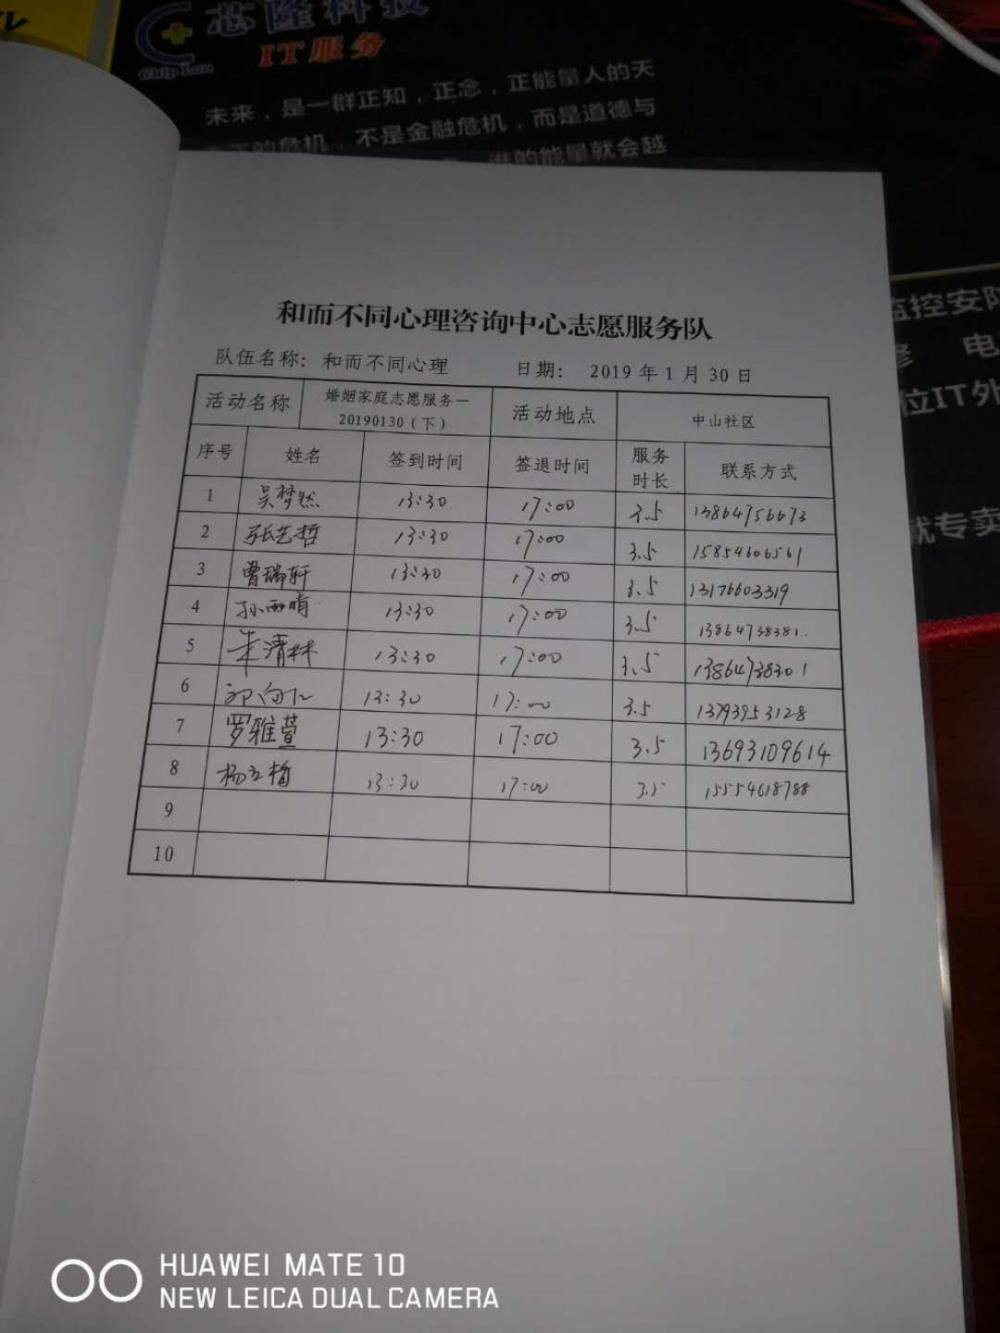 芯隆科技
IT服务
Chip Lon
未来，是一群正知，正念，正能量人的天
的危机，不是金融危机，而是道德与
谁的能量就会越
监控安防
修 电
位IT外
就专卖
和而不同心理咨询中心志愿服务队
队伍名称：和而不同心理 日期： 2019年1月30日
活动名称 婚姻家庭志愿服务一20190130（下） 活动地点 中山社区
序号 姓名 签到时间 签退时间 服务时长 联系方式
1 吴梦然 13:30 17:00 3.5 13864756673
2 张艺哲 13:30 17:00 3.5 15854606561
3 曹瑞轩 13:30 17:00 3.5 13176603319
4 孙雨晴 13:30 17:00 3.5 13864738381.
5 朱清林 13:30 17:00 3.5 13864738301
6 13:30 17:00 3.5 13793953128
7 罗雅萱 13:30 17:00 3.5 13693109614
8 杨立哲 13:30 17:00 3.5 15554618788
9
10
HUAWEI MATE 10
NEW LEICA DUAL CAMERA